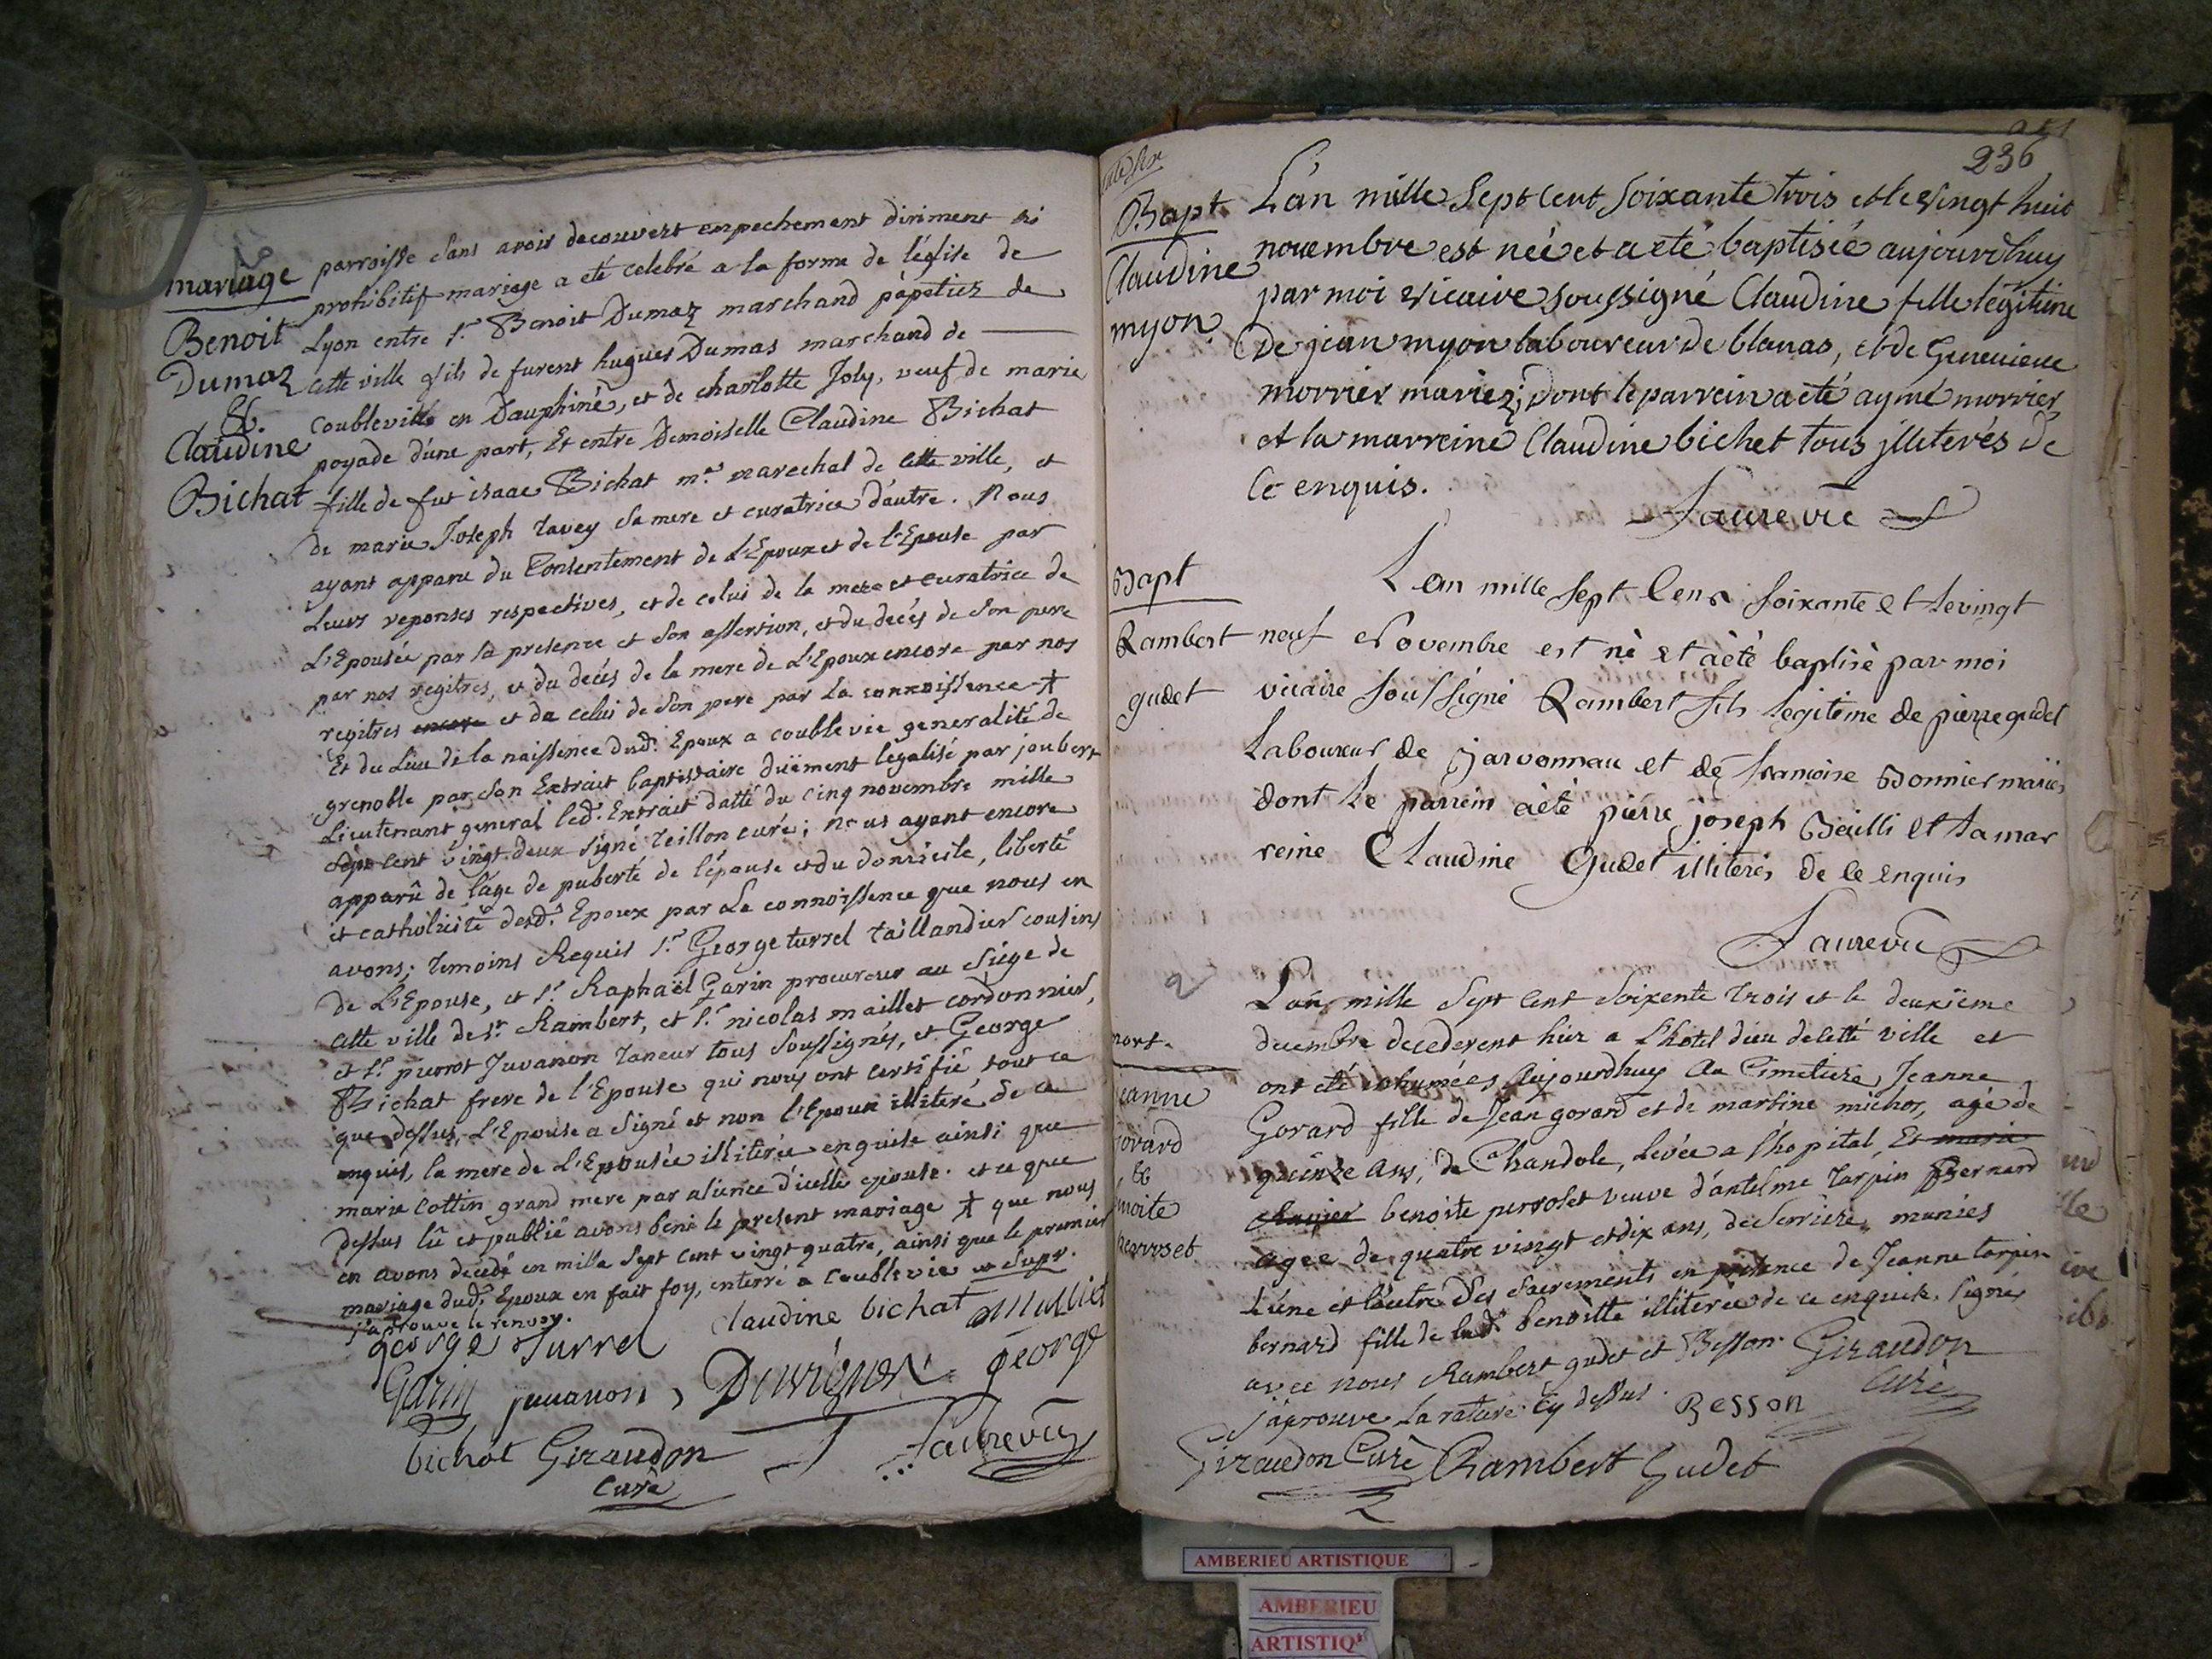 mariage
Benoit
Dumaz
&.
Claudine
Bichat
parroisse sans avoir decouvert empechement dirimant ni
prohibitif mariage a eté celebré a la forme de l'église de
Lyon entre s.r Benoit Dumaz marchand papetier de
cette ville fils de furent hugues Dumas marchand de
coubleville en Dauphiné, et de charlotte Joly, veuf de marie
poyade d'une part, Et entre Demoiselle Claudine Bichat
fille de fut isaac Bichat m.e marechal de cette ville, et
de marie Joseph tavey sa mere et curatrice d'autre. Nous
ayant apparu du Consentement de L'Epoux et de l'Epouse par
Leurs reponses respectives, et de celui de la mere et curatrice de
L'Epousée par sa presence et son assertion, et du decés de son pere
par nos regitres, et du decés de la mere de L'Epoux encore par nos
regitres encore et du celui de son pere par la connoissence
Et du Lieu de la naissence dud. Epoux a coublevie generalité de
grenoble par son Extrait baptistaire düement legalisé par joubert
Lieutenant general led. Extrait datté du cinq novembre mille
sept cent vingt deux signé teillon curé; nous ayant encore
apparû de l'age de puberté de l'épouse et du domicile, liberté
et catholicité desd. Epoux par La connoissence que nous en
avons; temoins Requis s.r George turrel taillandier cousins
de L'Epouse, et s.r Raphaël Garin procureur au siége de
cette ville de st Rambert, et s.r nicolas maillet cordonnier,
et s.r pierrot Juvanon taneur tous soussignés, et George
Bichat frere de l'Epouse qui nous ont certifié tout ce
que dessus, L'Epouse a signé et non l'Epoux illiteré de ce
enquis, la mere de L'Epousée illiterée enquise ainsi que
marie Cottin grand mere par alience d'icelle epouse. et ce que
dessus lû et publié avons beni le present mariage que nous
en avons decedé en mille sept cent vingt quatre, ainsi que le premier
mariage dud. Epoux en fait foy, enterré a Coublevie ut supr.
j'aprouve le renvoy.
george Turrel claudine bichat
Garin juuanon, george
bichat Giraudon Faurevie
Curé
236
Bapt
Claudine
myon
L'an mille sept cent soixante trois et le vingt huit
novembre est neé et a eté baptiseé aujourdhuy
par moi vicaire soussigné Claudine fille legitime
de jean myon laboureur de blanas, et de Genevieve
morrier mariez; dont le parrein a eté aymé morrier
et la marreine Claudine bichet tous jlliterés de
ce enquis.
Faurevie
Bapt
Rambert
gudet
L an mille sept Cens soixante et le vingt
neuf Novembre est né et a été baptisé par moi
vicaire soussigné Rambert fils legitime de pierre gudet
Laboureur de Jarvonnau et de francoise Bonnier mariés
dont le parrein a été pierre joseph Beilli et la mar
reine Claudine Gudet illiterés de ce enquis
Faurevie
2
mort.
jeanne
gorard
&
benoite
perroset
L'an mille sept cent soixente trois et le deuxieme
decembre decederent hier a L'hotel dieu de cette ville et
ont eté inhumées aujourdhuy au Cimetiere, Jeanne
Gorard fille de Jean gorard et de martine michon, agé de
quinze ans, de Chandole, Levée a l'hopital, Et marie
chavier benoite perroset veuve d'antelme tarpin Bernard
agee de quatre vingt et dix ans, de Serriere, munies
L'une et l'autre des sacrements en presence de Jeanne tarpin
bernard fille de lad. benoitte illiterée de ce enquise. signés
avec nous Rambert gudet et Besson. Giraudon
j'aprouve la rature cy dessus. Besson Curé
Giraudon Curé Rambert Gudet
AMBERIEU ARTISTIQUE
AMBERIEU
ARTISTIQ